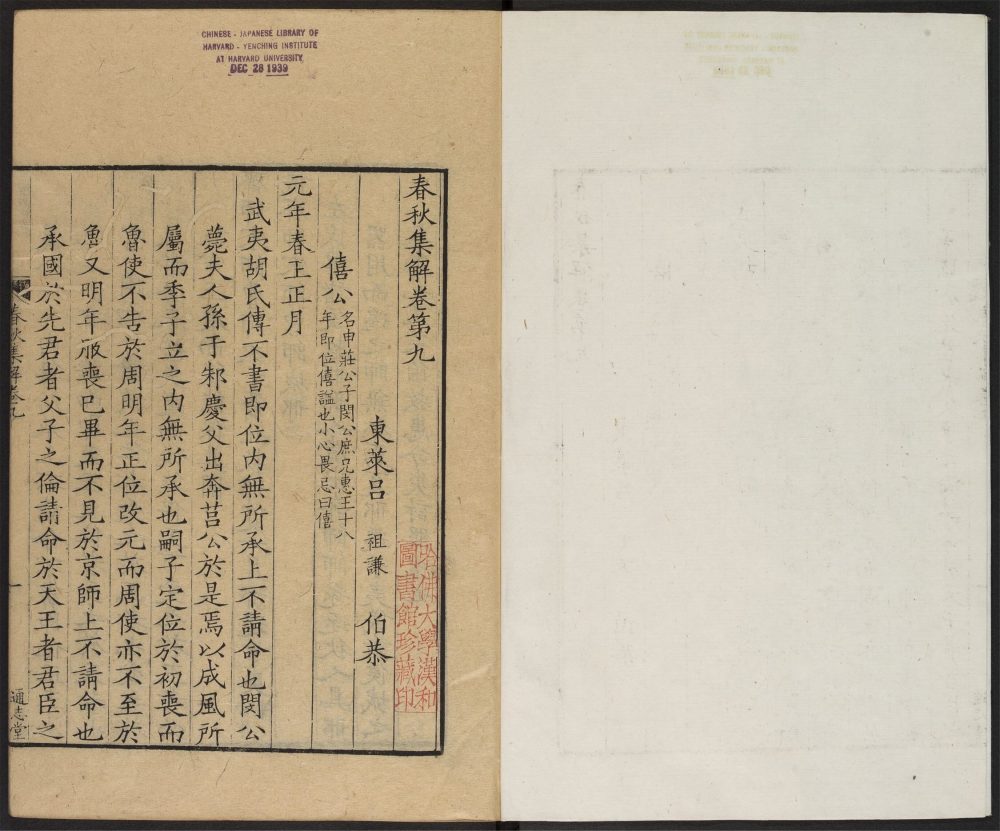 CHINESE - JAPANESE LIBRARY OF
HARVARD - YENCHING INSTITUTE
AT HARVARD UNIVERSITY
DEC 28 1939
春秋集解卷第九
東萊呂 祖謙 伯恭
哈佛大學漢和
圖書館珍藏印
僖公
名申莊公子閔公庶兄惠王十八
年即位僖謚也小心畏忌曰僖
元年春王正月
武夷胡氏傳不書即位内無所承上不請命也閔公
薨夫人孫于邾慶父出奔莒公於是焉以成風所
屬而季子立之内無所承也嗣子定位於初喪而
魯使不告於周明年正位改元而周使亦不至於
魯又明年服喪已畢而不見於京師上不請命也
承國於先君者父子之倫請命於天王者君臣之
春秋集解卷九
一
通志堂